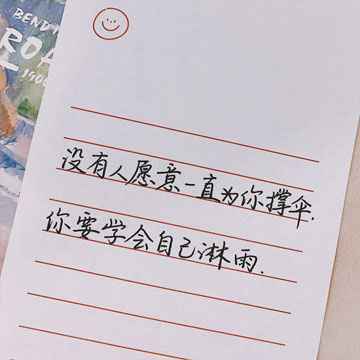 BEND
RO
没有人愿意一直为你撑伞.
你要学会自己淋雨.